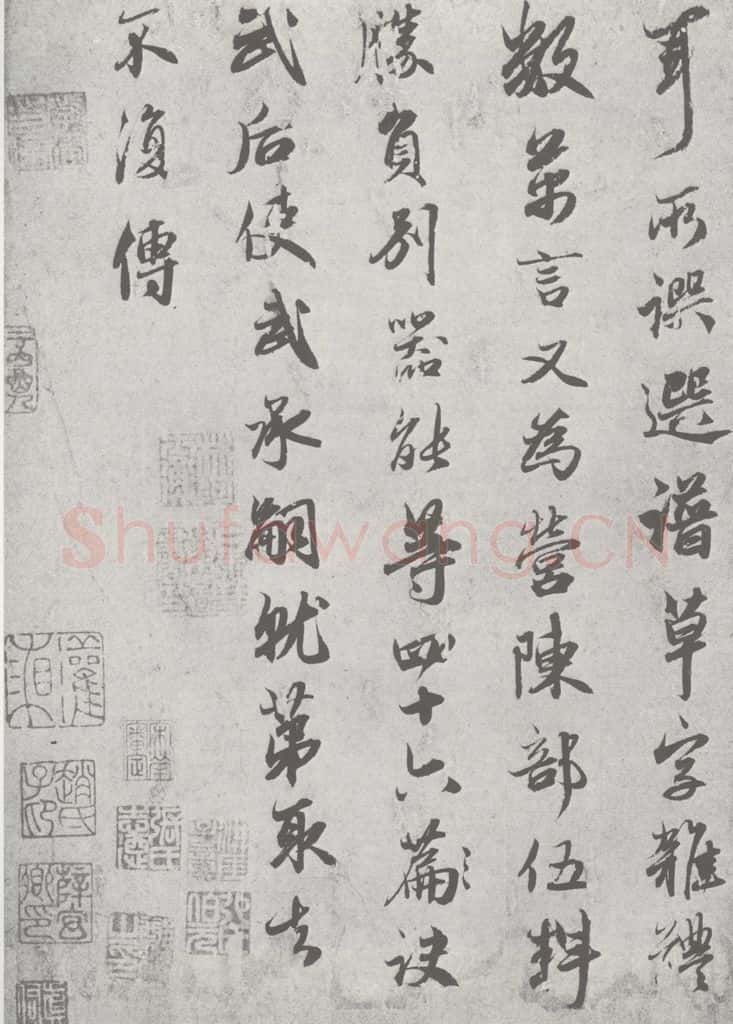 耳所譔選譜草字雜體
数萬言又為營陳部伍料
勝負别器能等四十六篇訣
武后使武承嗣就第取去
不復傳
Shufawang.CN